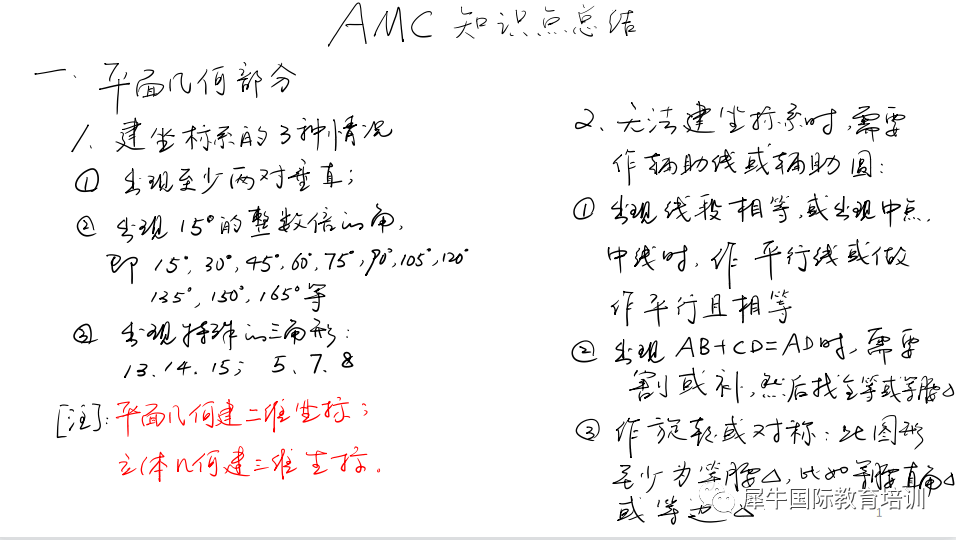 AMC 知识点总结
一、平面几何部分
1、建坐标系的3种情况
① 出现至少两对垂直；
② 出现15°的整数倍的角，
即 15°, 30°, 45°, 60°, 75°, 90°, 105°, 120°
135°, 150°, 165°等
③ 出现特殊的三角形：
13、14、15； 5、7、8
[注]：平面几何建二维坐标；
立体几何建三维坐标。
2、无法建坐标系时，需要
作辅助线或辅助圆：
① 出现线段相等，或出现中点、
中线时，作平行线或做
作平行且相等
② 出现 AB+CD=AD时，需要
割或补，然后找全等或等腰△
③ 作旋转或对称：此图形
至少为等腰△，比如等腰直角△
或等边△
犀牛国际教育培训
1